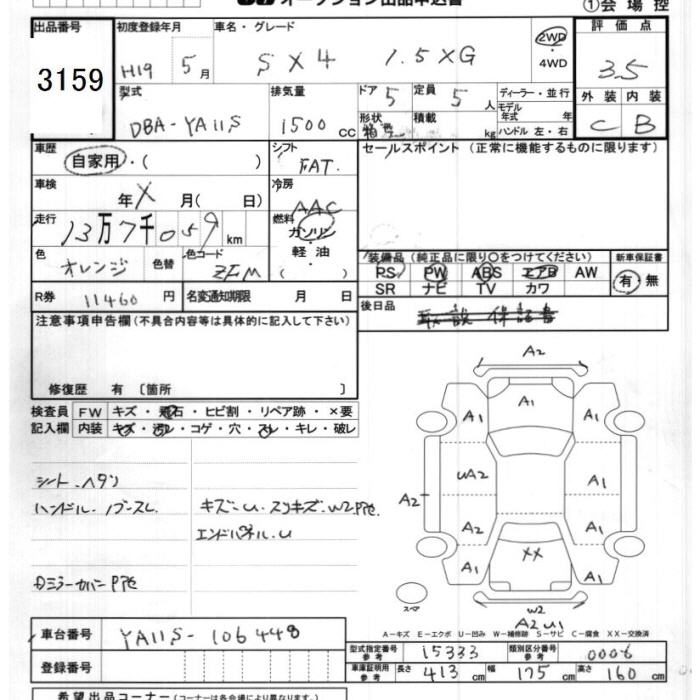 オークション出品申込書 ①会場控
出品番号 初度登録年月 車名・グレード 評価点
3159 H19 5月 SX4 1.5XG 2WD・4WD 3.5
型式 排気量 ドア 定員 ディーラー・並行 外装 内装
DBA-YA11S 1500CC 5 5人 モデル年式 年 C B
形状 積載 kg ハンドル 左・右
車歴 自家用・( ) シフト FAT. セールスポイント (正常に機能するものに限ります)
車検 年X月(日) 冷房 AAC
走行 13万7千059km 燃料 ガソリン・軽油・( )
色 オレンジ 色替 色コード ZFM
装備品 (純正品に限り〇をつけてください) 新車保証書
PS PW ABS エアB AW 有・無
SR ナビ TV カワ
R券 11460円 名変通知期限 月 日 後日品 取説 保証書
注意事項申告欄 (不具合内容等は具体的に記入して下さい)
修復歴 有 〔箇所 〕
検査員記入欄 FW キズ・飛石・ヒビ割・リペア跡・×要
内装 キズ・汚レ・コゲ・穴・スレ・キレ・破レ
シート・ヘタリ
ハンドル・ノブ-スレ
キズ-U・スリキズ・W2.Pアセ
エンドパネル・U
DミラーカバーPアセ
A2
A1
A1 A1
UA2 A1
A2
A2 A1
XX
A1 A1
スペア
W2
A2 U1
A-キズ E-エクボ U-凹み W-補修跡 S-サビ C-腐食 XX-交換済
車台番号 YA11S-106448
型式指定番号 参考 15333 類別区分番号 参考 0006
登録番号
車庫証明用 参考 長さ 413cm 幅 175cm 高さ 160cm
希望出品コーナー (コーナーは各会場により異なります。)